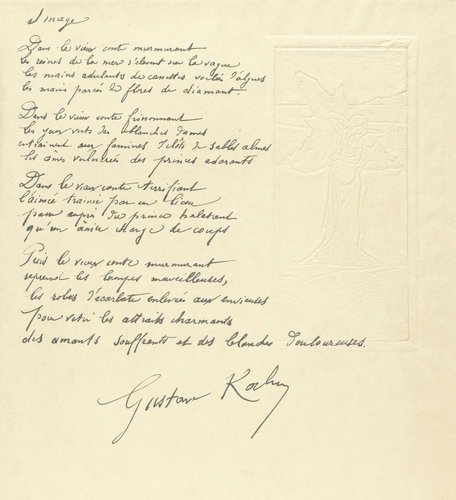 Image
Dans le vieux conte murmurant
les reines de la mer s'élèvent sur la vague
les mains adulantes de voilées d'algues
les mains parées de flores de diamant.
Dans le vieux conte frissonnant
les yeux verts des blanches dames
entraînent aux famines d'îlots de sables almes
les âmes vulnérées des princes adorants
Dans le vieux conte terrifiant
l'aimée trainée par un lion
passe auprès du prince haletant
qu'un ânier charge de coups
Puis le vieux conte murmurant
reprend les lampes merveilleuses,
les robes d'écarlate enlevées aux envieuses
pour vêtir les attraits charmants
des amants souffrants et des blanches douloureuses.
Gustave Kahn